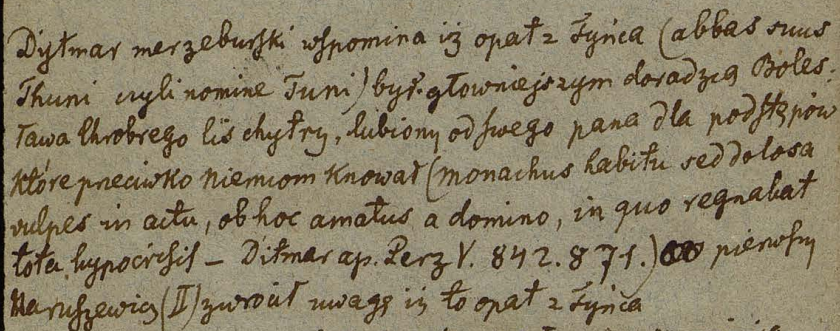 Dytmar merzeburski wspomina iż opat z Tyńca (abbas suus
Thuni czyli nomine Tuni) był głowniejszym doradzcą Boles-
ława Chrobrego lis chytry, lubiony od swego pana dla podstępów
które przeciwko Niemcom knował (monachus habitu sed dolosa
vulpes in actu, ob hoc amatus a domino, in quo regnabat
tota hypocrisis – Ditmar ap. Perz V. 842. 871.) pierwszy
Naruszewicz (II) zwrocił uwagę iż to opat z Tyńca